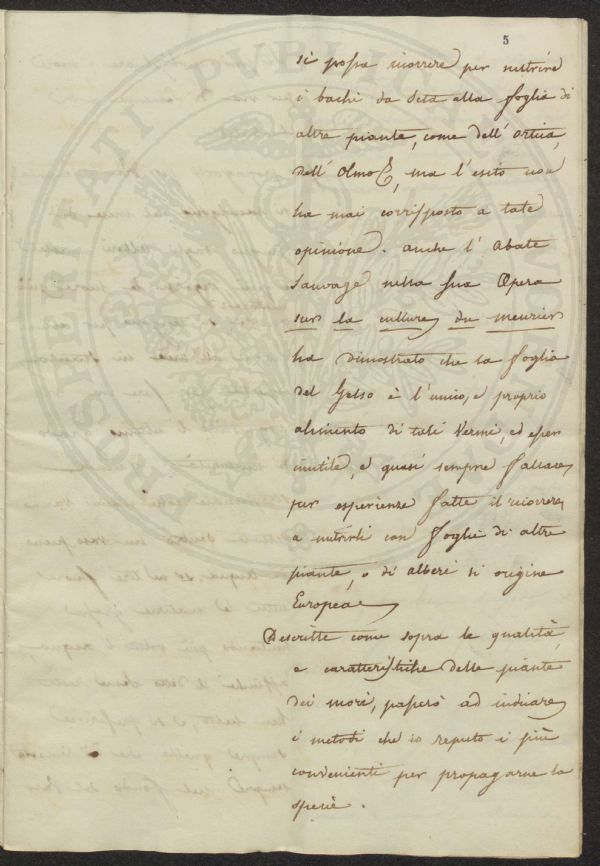 5
si possa ricorrere per nutrire
i bachi da seta alla foglia di
altre piante, come dell'ortica,
dell'Olmo &, ma l'esito non
ha mai corrisposto a tale
opinione. Anche l'Abate
Sauvage nella sua Opera
sur la culture du meurier
ha dimostrato che la foglia
del Gelso è l'unico, e proprio
alimento di tali Vermi, ed esser
inutile, e quasi sempre fallace
per esperienze fatte il ricorrere
a nutrirli con foglie di altre
piante, o di alberi di origine
Europea
Descritte come sopra le qualità,
e caratteristiche delle piante
dei mori, passerò ad indicare
i metodi che io reputo i più
convenienti per propagarne la
specie.
PROSPERITATI PVBLICAE